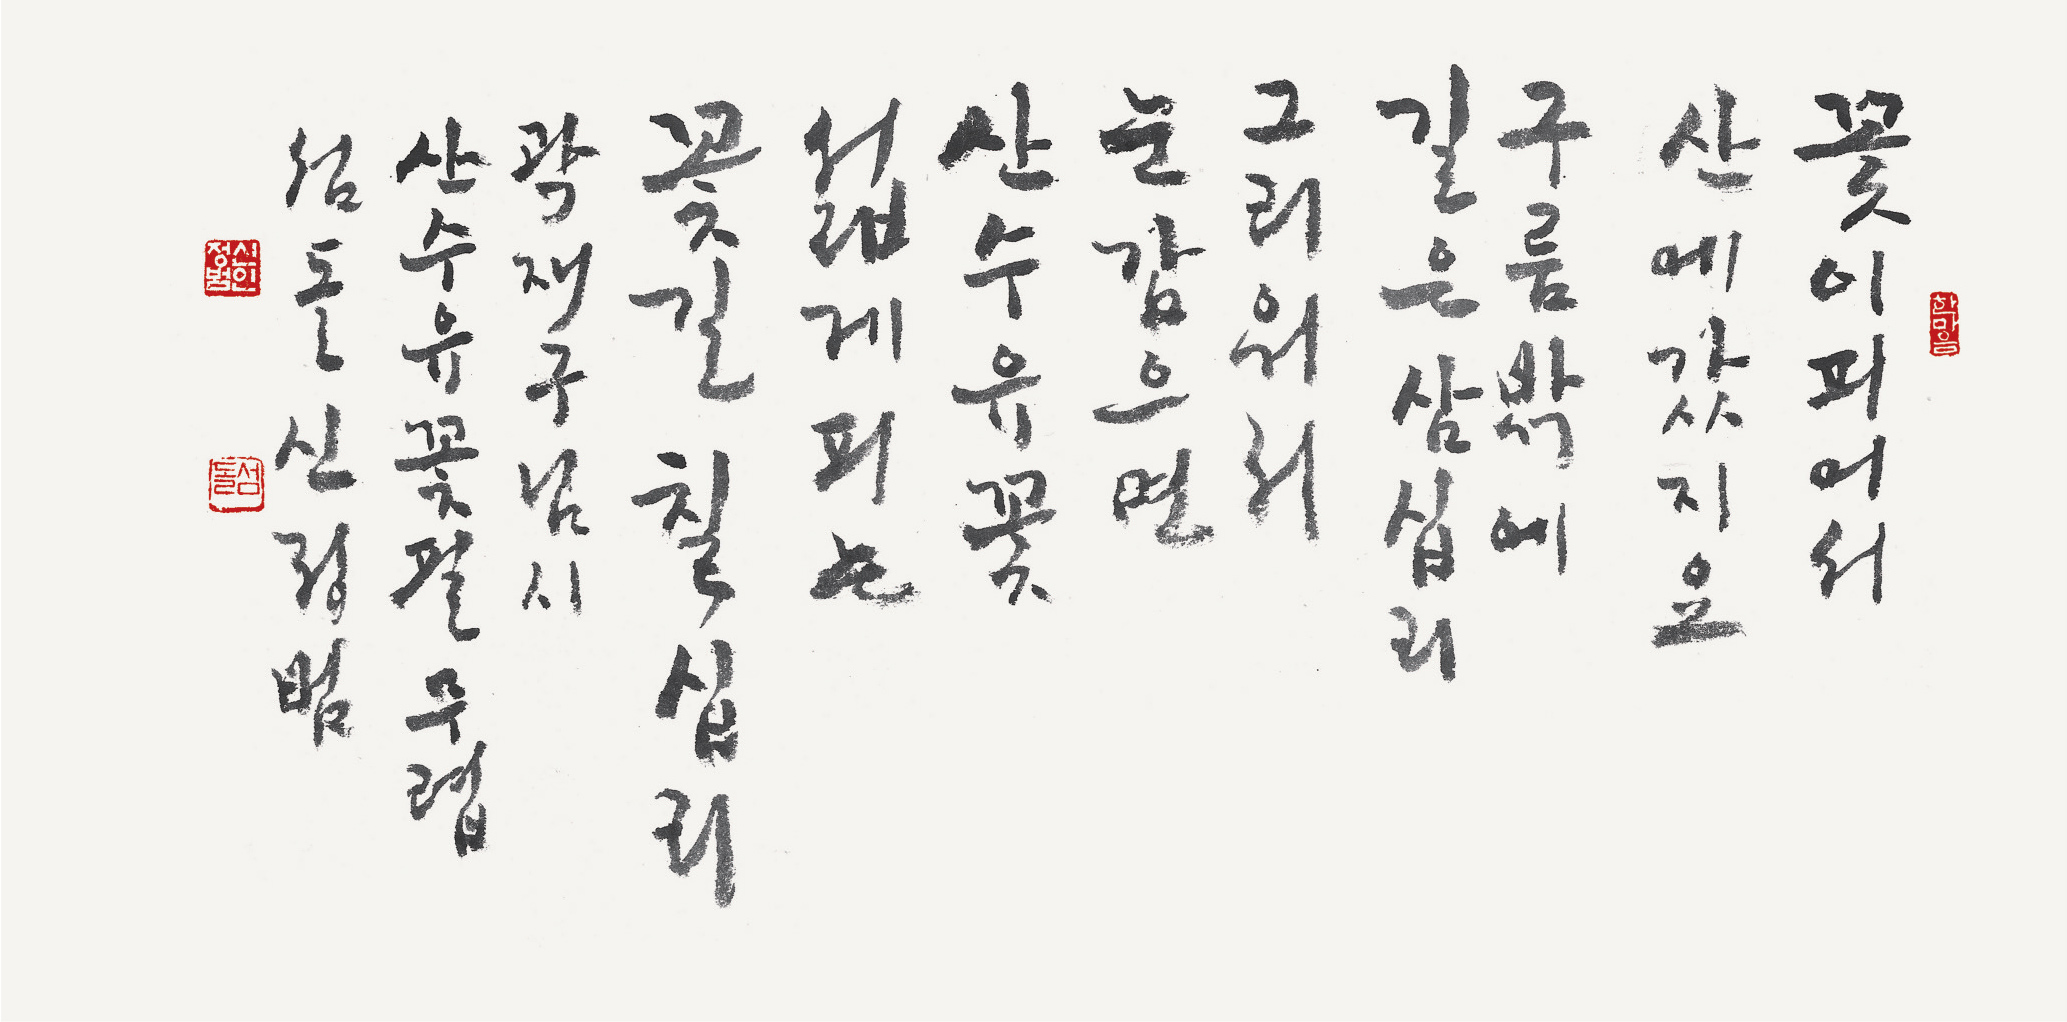 꽃이피어서
산에갔지요
구름밖에
길은삼십리
그리워서
눈감으면
산수유꽃
섧게피는
꽃길 칠십리
곽재구님시
산수유꽃필무렵
섬돌신정범
신인정범
섬돌